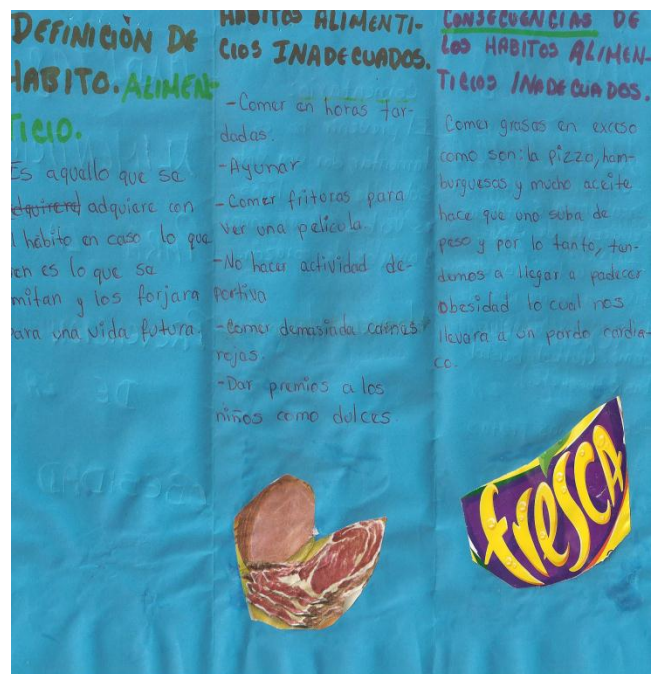 DEFINICIÓN DE
HABITO. ALIMEN-
TICIO.
Es aquello que se
adquiere con
l hábito en caso lo que
en es lo que se
mitan y los forjara
ara una vida futura.
HABITOS ALIMENTI-
CIOS INADECUADOS.
-Comer en horas tar-
dadas.
-Ayunar
-Comer frituras para
ver una película.
-No hacer actividad de-
portiva
-Comer demasiada carnes
rojas.
-Dar premios a los
niños como dulces.
CONSECUENCIAS DE
LOS HABITOS ALIMEN-
TICIOS INADECUADOS.
Comer grasas en exceso
como son: la pizza, ham-
burguesas y mucho aceite
hace que uno suba de
peso y por lo tanto, ten-
demos a llegar a padecer
obesidad lo cual nos
llevara a un pardo cardia-
co.
fresca